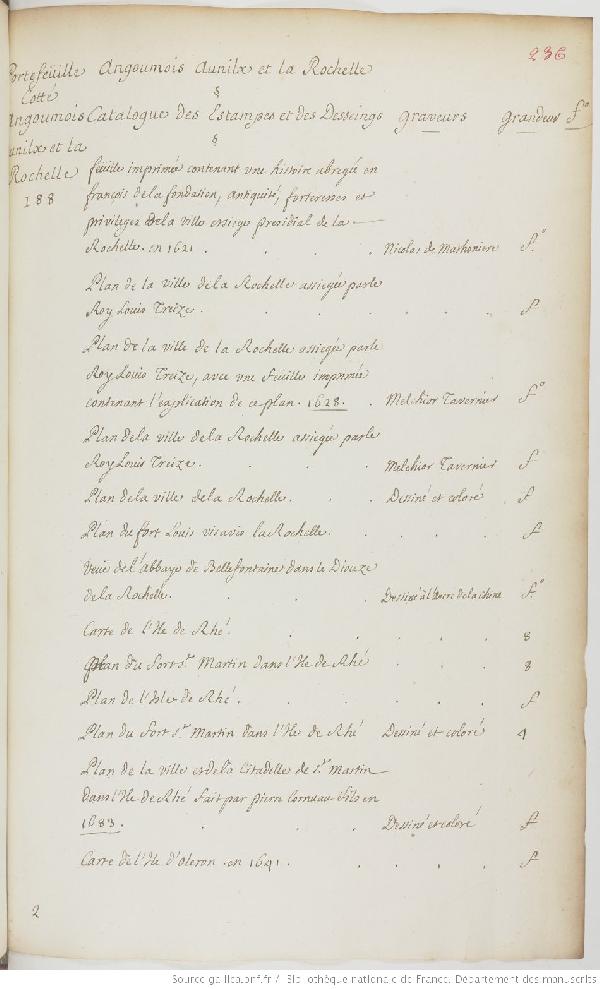 236
Portefeüille Angoumois Aunilx et la Rochelle
Cotté §
Angoumois Catalogue des Estampes et des Desseings graveurs grandeur f.º
aunilx et la §
Rochelle
188
feüille imprimée contenant vne histoire abregée en
françois de la fondation, antiquité, forteresses et
privileges de la ville et siege presidial de la
Rochelle. en 1621 . . . . Nicolas de Mathoniere f.º
Plan de la ville de la Rochelle assiegée par le
Roy Louis Treize . . . . . . f
Plan de la ville de la Rochelle assiegée par le
Roy Louis Treize, avec vne feuille imprimée
contenant l'explication de ce plan. 1628. . Melchior Tavernier f.º
Plan de la ville de la Rochelle assiegée par le
Roy Louis Treize. . . . Melchior Tavernier f
Plan de la ville de la Rochelle. . . Dessiné et coloré f
Plan du fort Louis vis avis la Rochelle. . . . f
Veüe de l'abbaye de Bellefontaine dans le Dioceze
de la Rochelle. . . . Dessiné à l'encre de la chine f.º
Carte de l'Ile de Rhé. . . . . 8
Plan du fort s.t Martin dans l'Ile de Rhé . . . 8
Plan de l'Isle de Rhé. . . . . f
Plan du fort s.t Martin dans l'Ile de Rhé Dessiné et coloré 4
Plan de la ville et de la Citadelle de s.t Martin
dans l'Ile de Rhé fait par pierre Cornuau fils en
1683. . . . Dessiné et coloré f
Carte de l'Ile d'Oleron. en 1641. . . . . f
2
Source gallica.bnf.fr / Bibliothèque nationale de France. Département des manuscrits